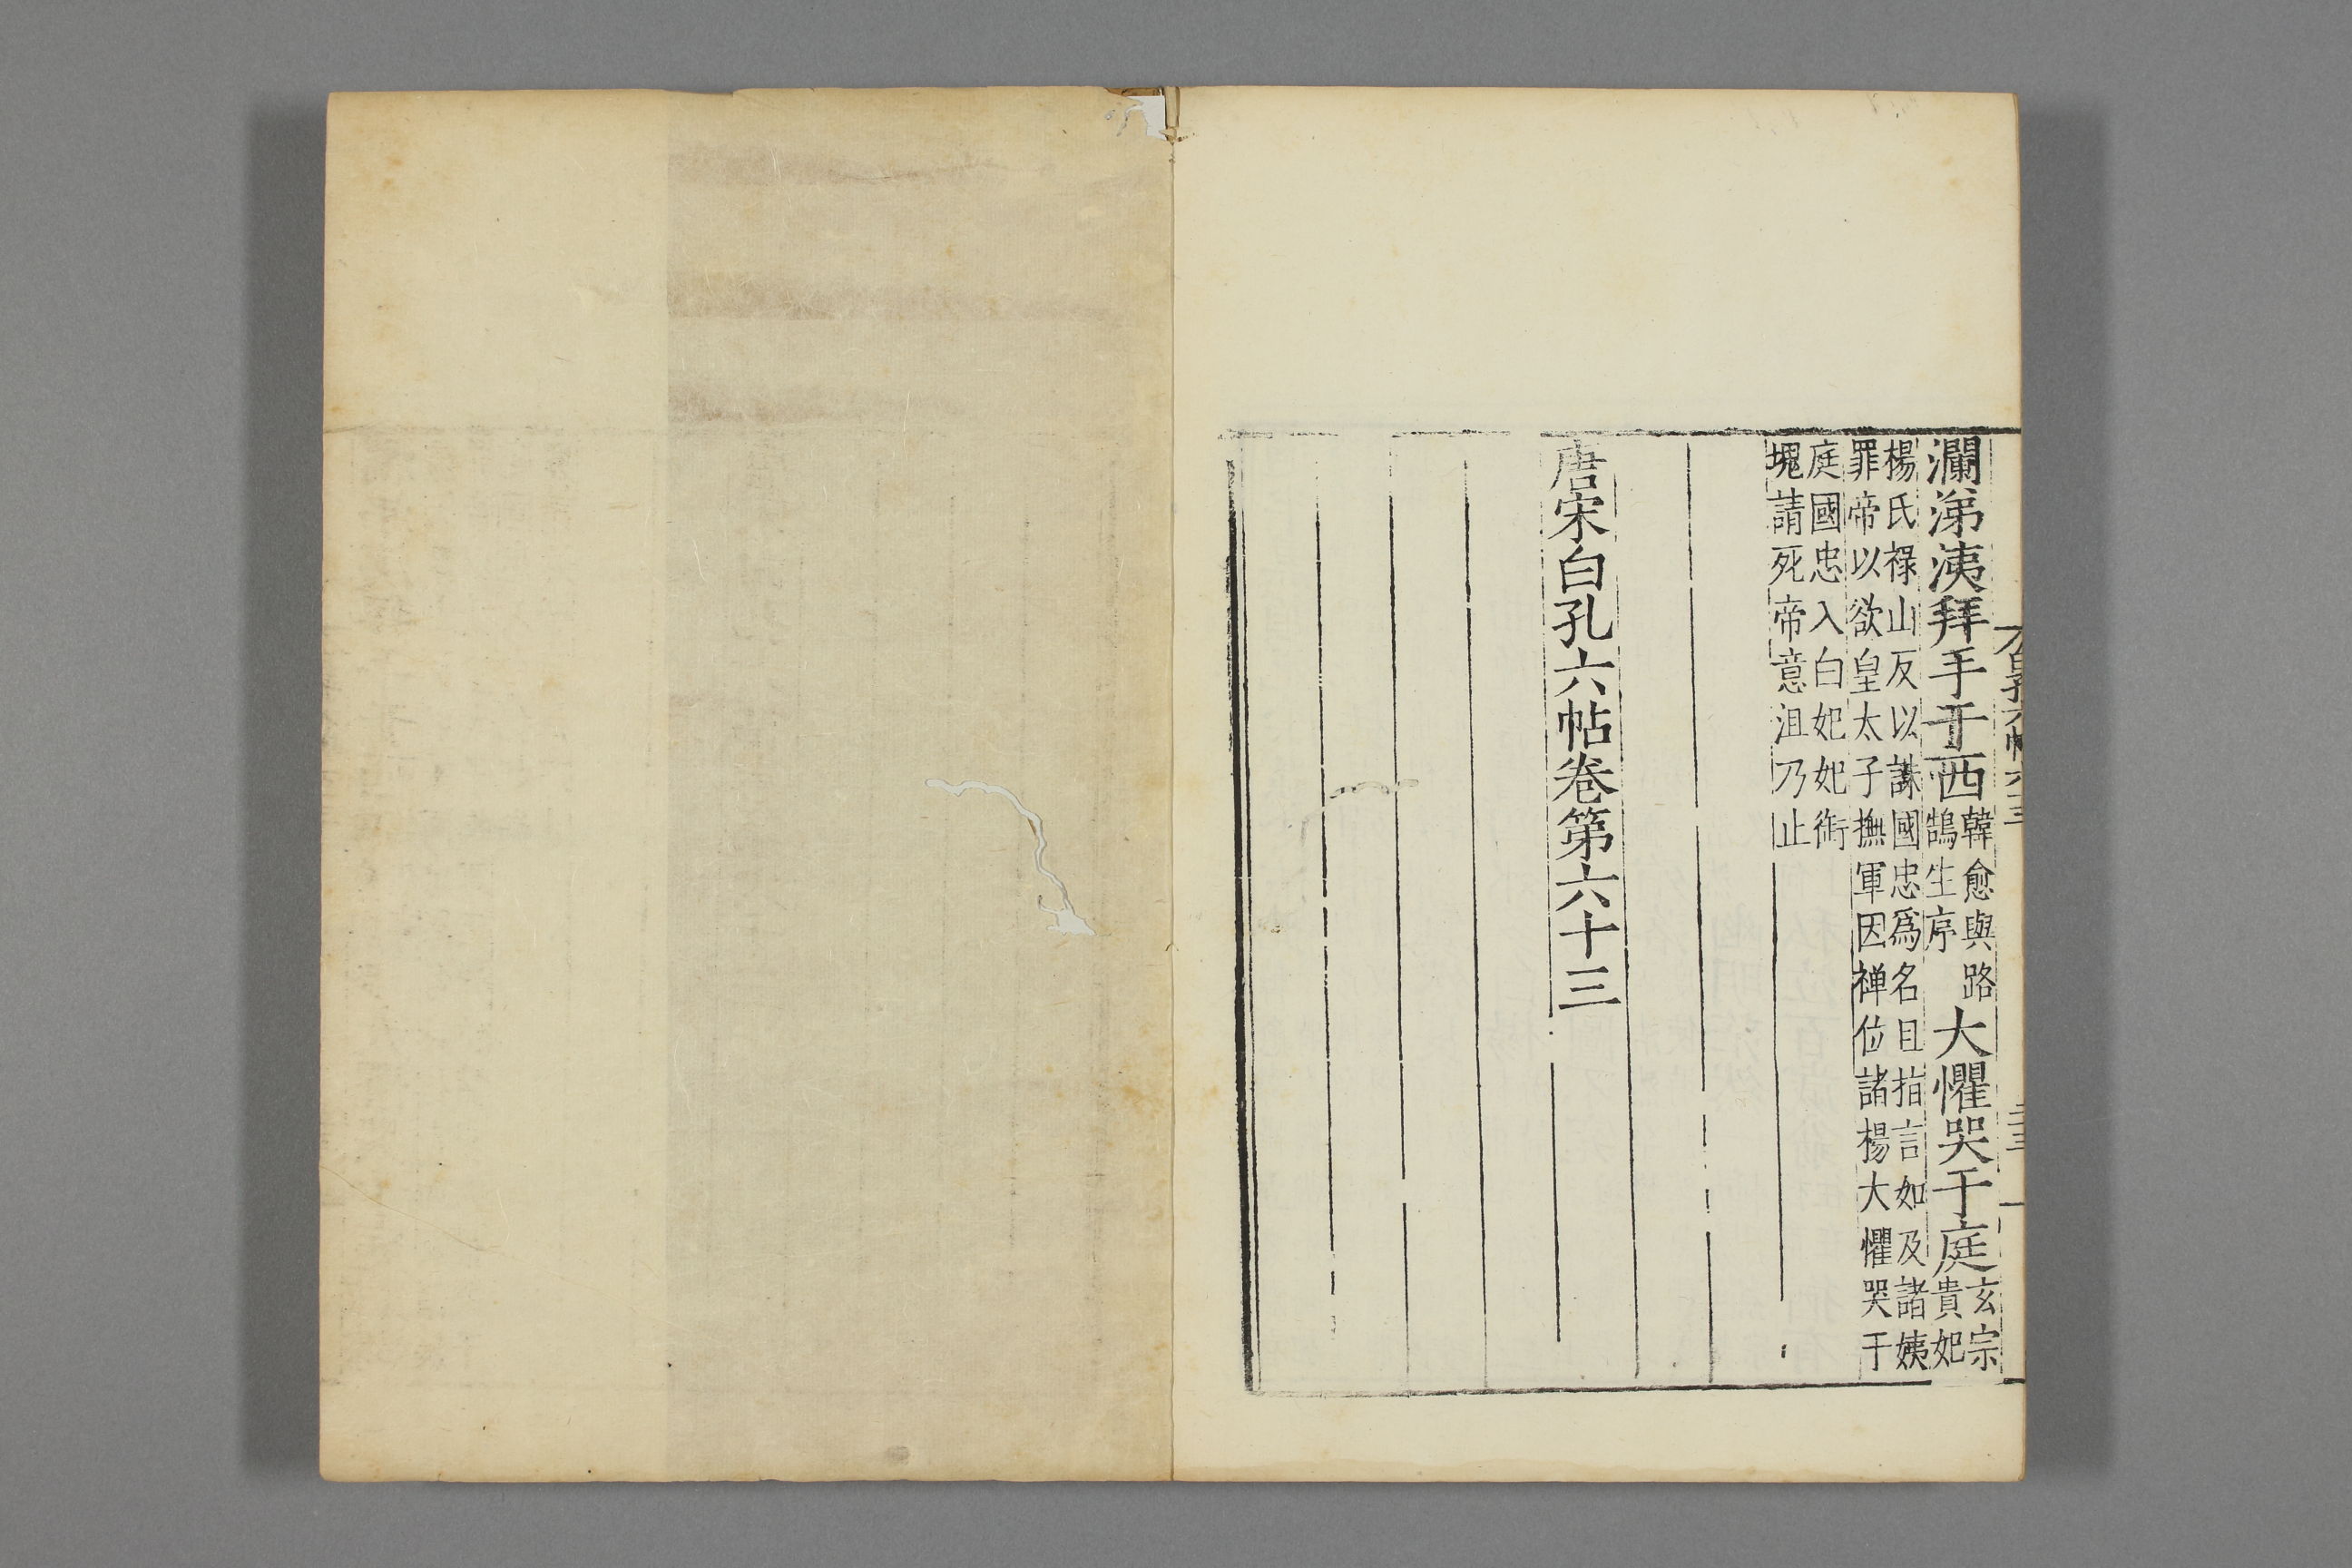 瀾涕洟拜手于西韓愈與路鵠生序大懼哭于庭玄宗貴妃
楊氏禄山反以誅國忠爲名且指言如及諸姨
罪帝以欲皇太子撫軍因禅位諸楊大懼哭于
庭國忠入白妃妃銜
塊請死帝意沮乃止
唐宋白孔六帖卷第六十三